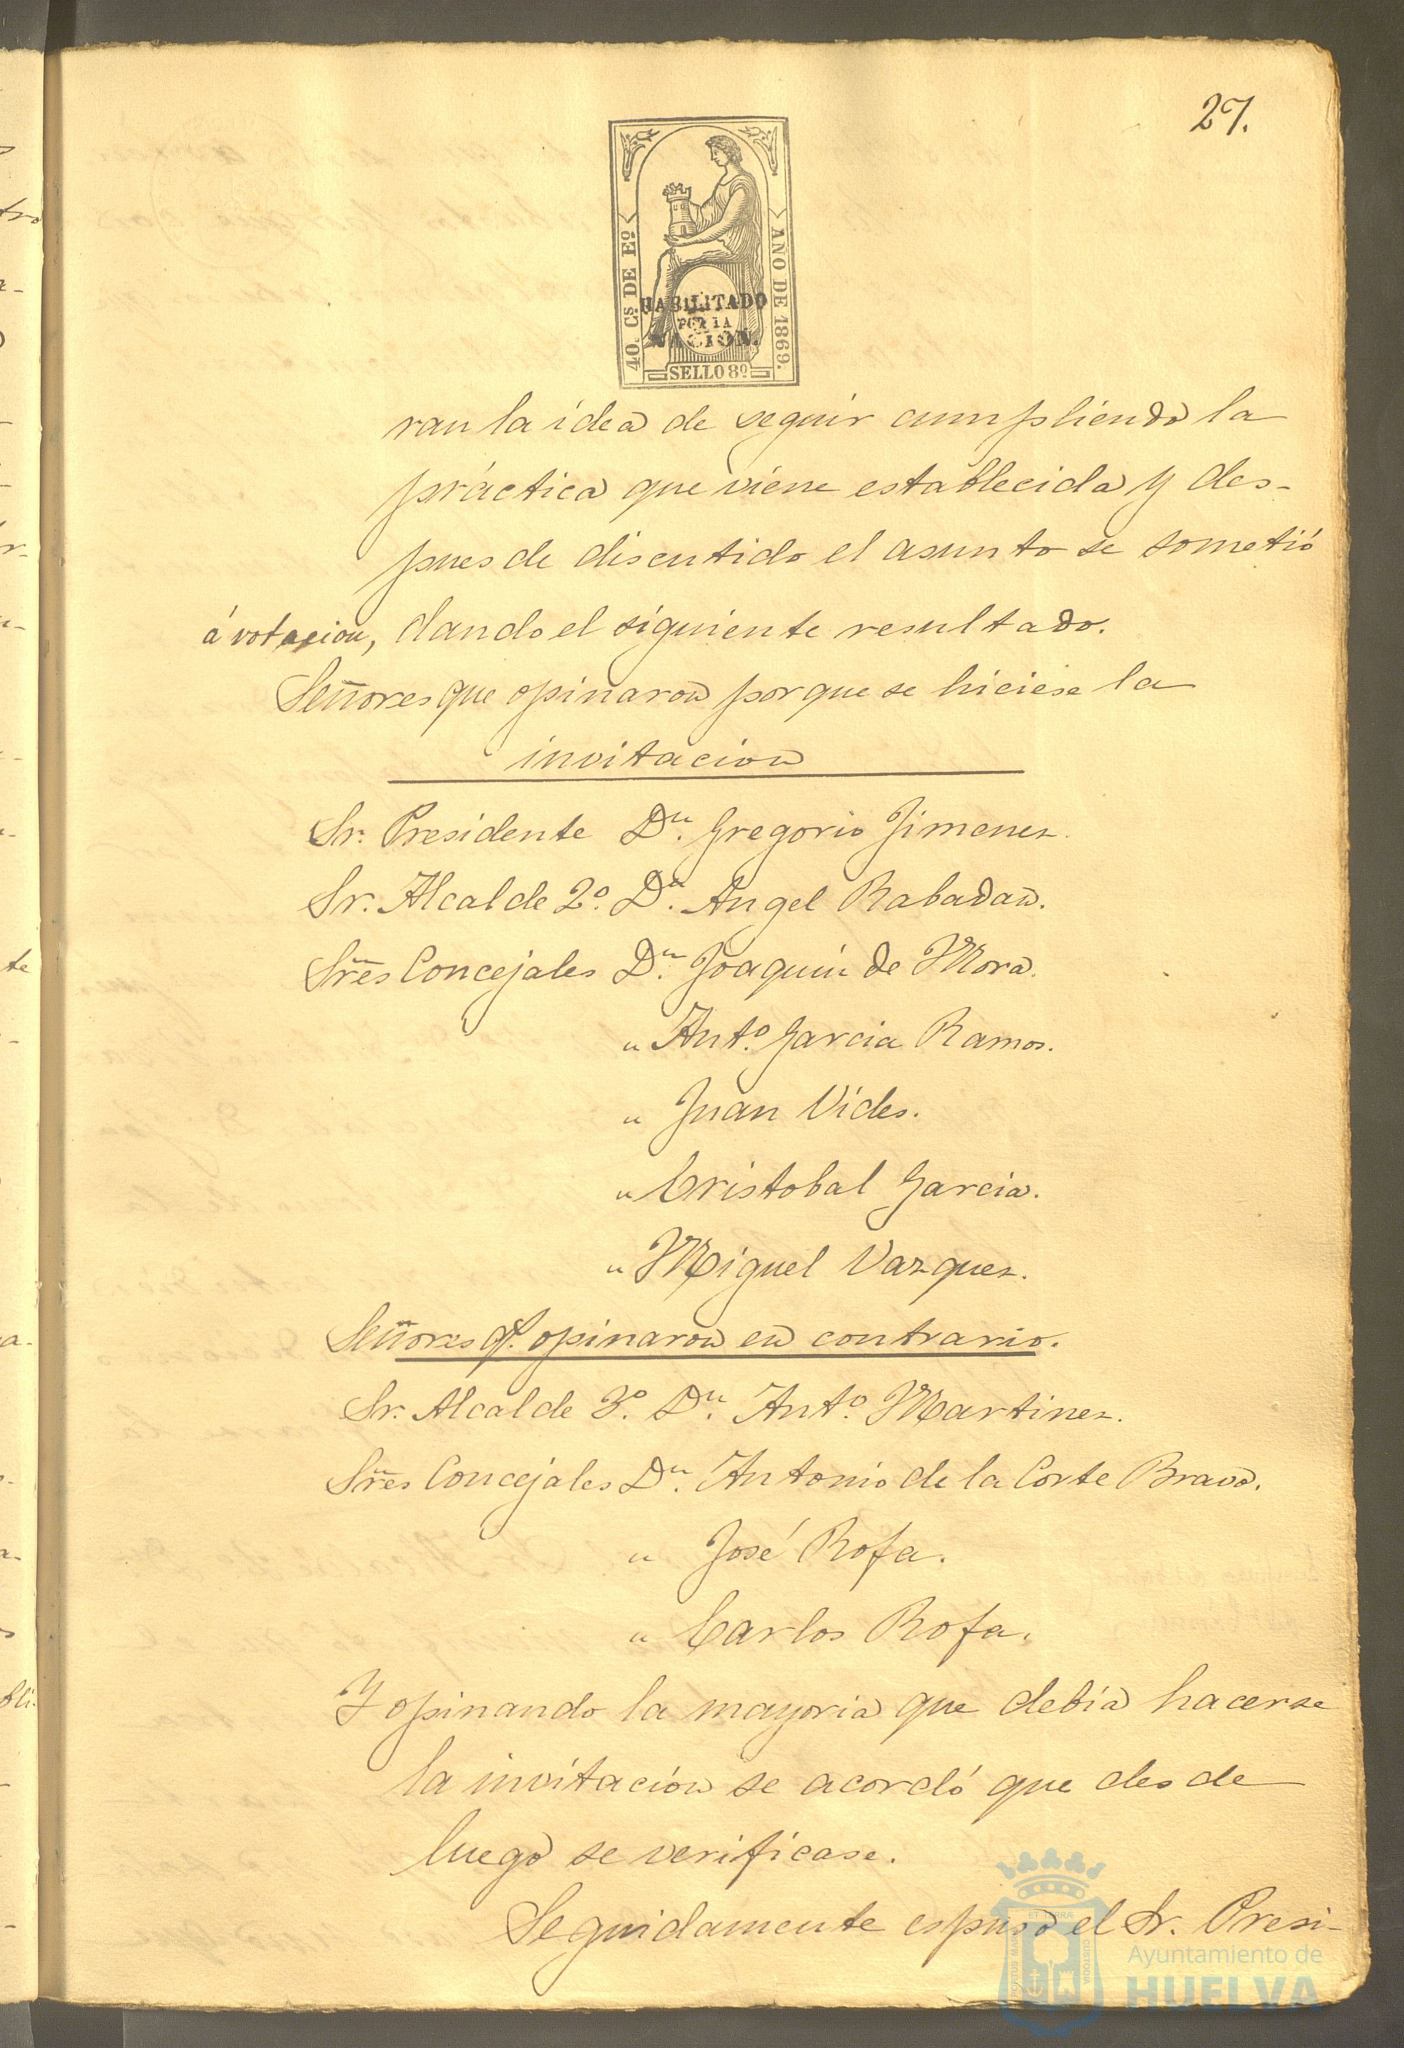 27.
40. Cs DE Eº
AÑO DE 1869.
HABILITADO
POR LA
NACION.
SELLO 8º
ran la idea de seguir cumpliendo la
práctica que viene establecida y des-
pues de discutido el asunto se sometió
á votacion, dando el siguiente resultado.
Señores que opinaron porque se hiciese la
invitacion
Sr. Presidente Dn. Gregorio Jimenez.
Sr. Alcalde 2º. Dn. Angel Rabadan.
Sres Concejales Dn. Joaquin de Mora.
" Antº. Garcia Ramos.
" Juan Vides.
" Cristobal Garcia.
" Miguel Vazquez.
Señores q. opinaron en contrario.
Sr. Alcalde 3º. Dn. Antº. Martinez.
Sres Concejales Dn. Antonio de la Corte Bravo.
" José Rofa.
" Carlos Rofa.
Y opinando la mayoria que debia hacerse
la invitación se acordó que desde
luego se verificase.
Seguidamente espuso el Sr. Presi-
Ayuntamiento de
HUELVA